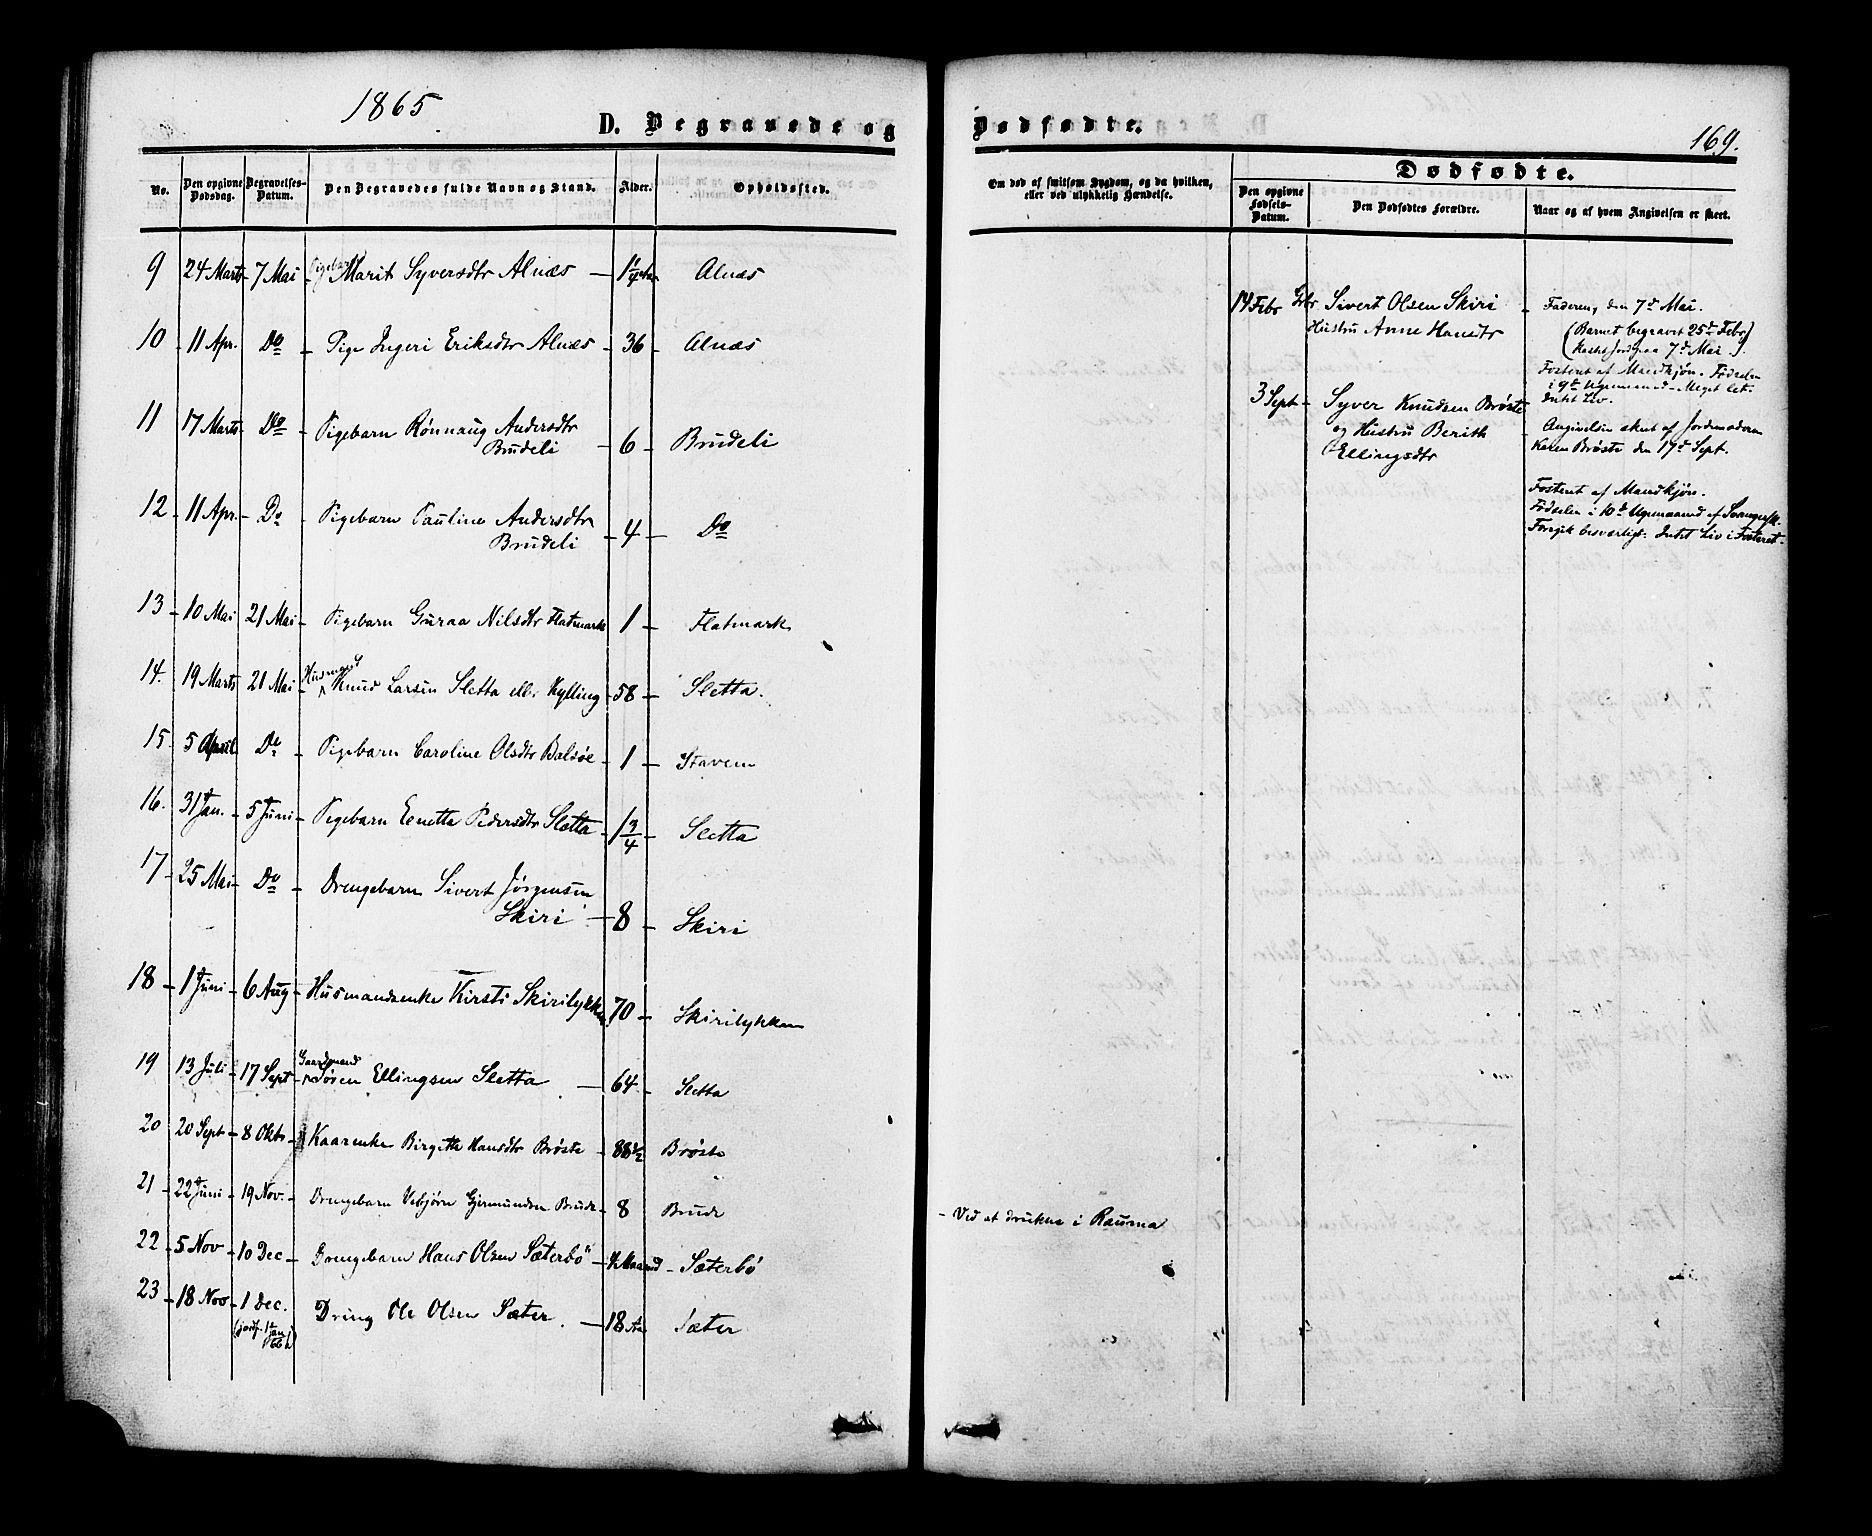 1865
D. Begravede og
No.
Den opgivne Dødsdag.
Begravelses-Datum.
Den Begravedes fulde Navn og Stand.
Alder.
Opholdssted.
9 24 Marts 7 Mai Pigebarn Marit Syversdtr Alnæs 1 1/4 Alnæs
10 11 Apr. Do Pige Ingeri Eriksdtr Alnæs 36 Alnæs
11 17 Marts Do Pigebarn Rønnaug Andersdtr
Brudeli 6 Brudeli
12 11 Apr. Do Pigebarn Pauline Andersdtr
Brudeli 4 Do
13 10 Mai 21 Mai Pigebarn Guraa Nilsdtr Flatmark 1 Flatmark
14. 19 Marts 21 Mai Knud Larsen Sletta ell. Kylling 58 Sletta.
15 5 April Do Pigebarn Caroline Olsdtr Balsøe 1 Stavem
16. 31 Jan. 5 Juni Pigebarn Eenetta Pedersdtr Sletta 1 3/4 Sletta
17 25 Mai Do Drengebarn Sivert Jørgensen
Skiri 8 Skiri
18 1 Juni 6 Aug Husmandsenke Kirsti Skirilykken 70 Skirilykken
19 13 Juli 17 Sept Gaardmand Søren Ellingsen Sletta 64 Sletta
20 20 Sept 8 Okt. Kaarenke Birgitte Hansdtr Brøste 88 1/2 Brøste
21 22 Juni 19 Nov. Drengebarn Vebjørn Gjermundsen Brude 8 Brude
22 5 Nov 10 Dec Drengebarn Hans Olsen Sæterbø Maaned Sæterbø
23 18 Nov 1 Dec. Dreng Ole Olsen Sæter 18 Aar Sæter
(jordf. 1 Jan 66)
Dødfødte.
169.
Om død af smitsom Sygdom, og da hvilken,
eller ved ulykkelig Hændelse.
Dødfødte.
Den opgivne Fødsels-Datum.
Den Dødfødtes Forældre.
Naar og af hvem Angivelsen er skeet.
14 Febr Grbr Sivert Olsen Skiri
Hustru Anne Hansdtr
Faderen, den 7d Mai.
(Barnet begravet 25d Febr
kastet Jord paa 7d Mai).
Fosteret af Mandkjøn. Fødselen
i 9d Ugemaaned. Meget let.
Intet Liv.
3 Sept Syver Knudsen Brøste
og Hustru Berith
Ellingsdtr
Angivelsen skeet af Jordemoderen
Karen Brøste den 17d Sept.
Fosteret af Mandkjøn.
Fødselen i 10d Ugemaaned af Svangersk.
Foregik besværligt. Intet Liv i Fosteret.
- Ved at drukne i Rauma